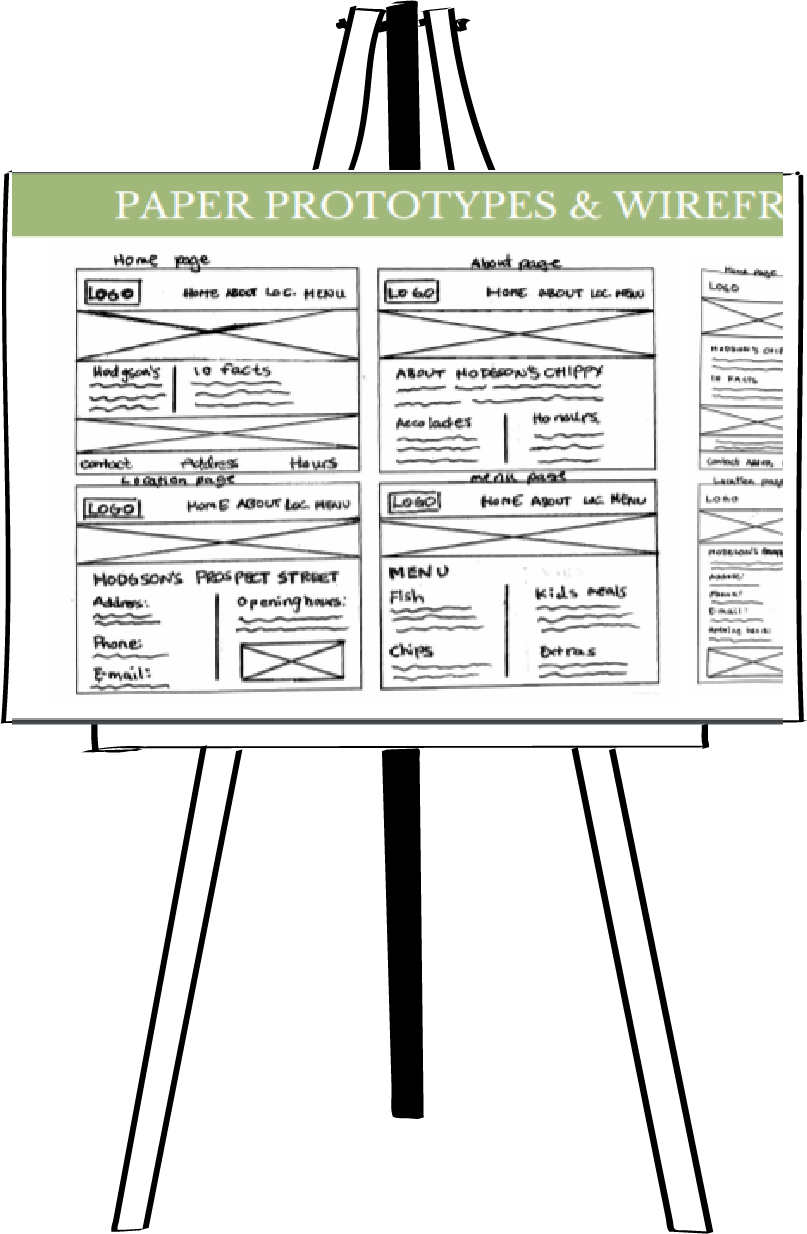 PAPER PROTOTYPES & WIREFR
Home page
LOGO HOME ABOUT LOC. MENU
Hodgson's 10 facts
Contact Address Hours
About page
LOGO HOME ABOUT LOC. MENU
ABOUT HODGSON'S CHIPPY
Accolades Honours
Location page
LOGO HOME ABOUT LOC. MENU
HODGSON'S PROSPECT STREET
Address: Opening hours:
Phone:
E-mail:
menu page
LOGO HOME ABOUT LOC. MENU
MENU
Fish Kids meals
Chips Extras
Home page
LOGO
HODGSON'S CHIP
10 FACTS
Contact Addre
Location page
LOGO
HODGSON'S
Address:
Phone:
E-mail:
Opening hours: